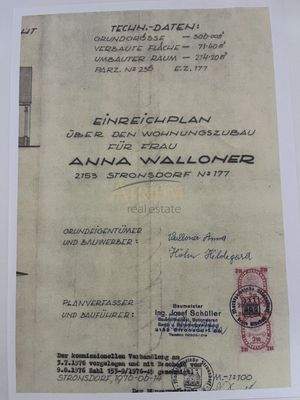 TECHN. DATEN:
GRUNDGRÖSSE
VERBAUTE FLÄCHE
UMBAUTER RAUM
PARZ. Nº 256 E.Z. 177
EINREICHPLAN
ÜBER DEN WOHNUNGSZUBAU
FÜR FRAU
ANNA WALLONER
2153 STRONSDORF Nº 177
real estate
GRUNDEIGENTÜMER
UND BAUWERBER:
Walloner Anna
Hildegard
PLANVERFASSER
UND BAUFÜHRER:
Baumeister
Ing. Josef Schüller
Der kommissionellen Verhandlung am
3.7.1976 vorgelegen und mit Bescheid vom
9.8.1976 Zahl 153-9/1976-46 genehmigt
STRONSDORF, 1976-06-14
M.-1:100